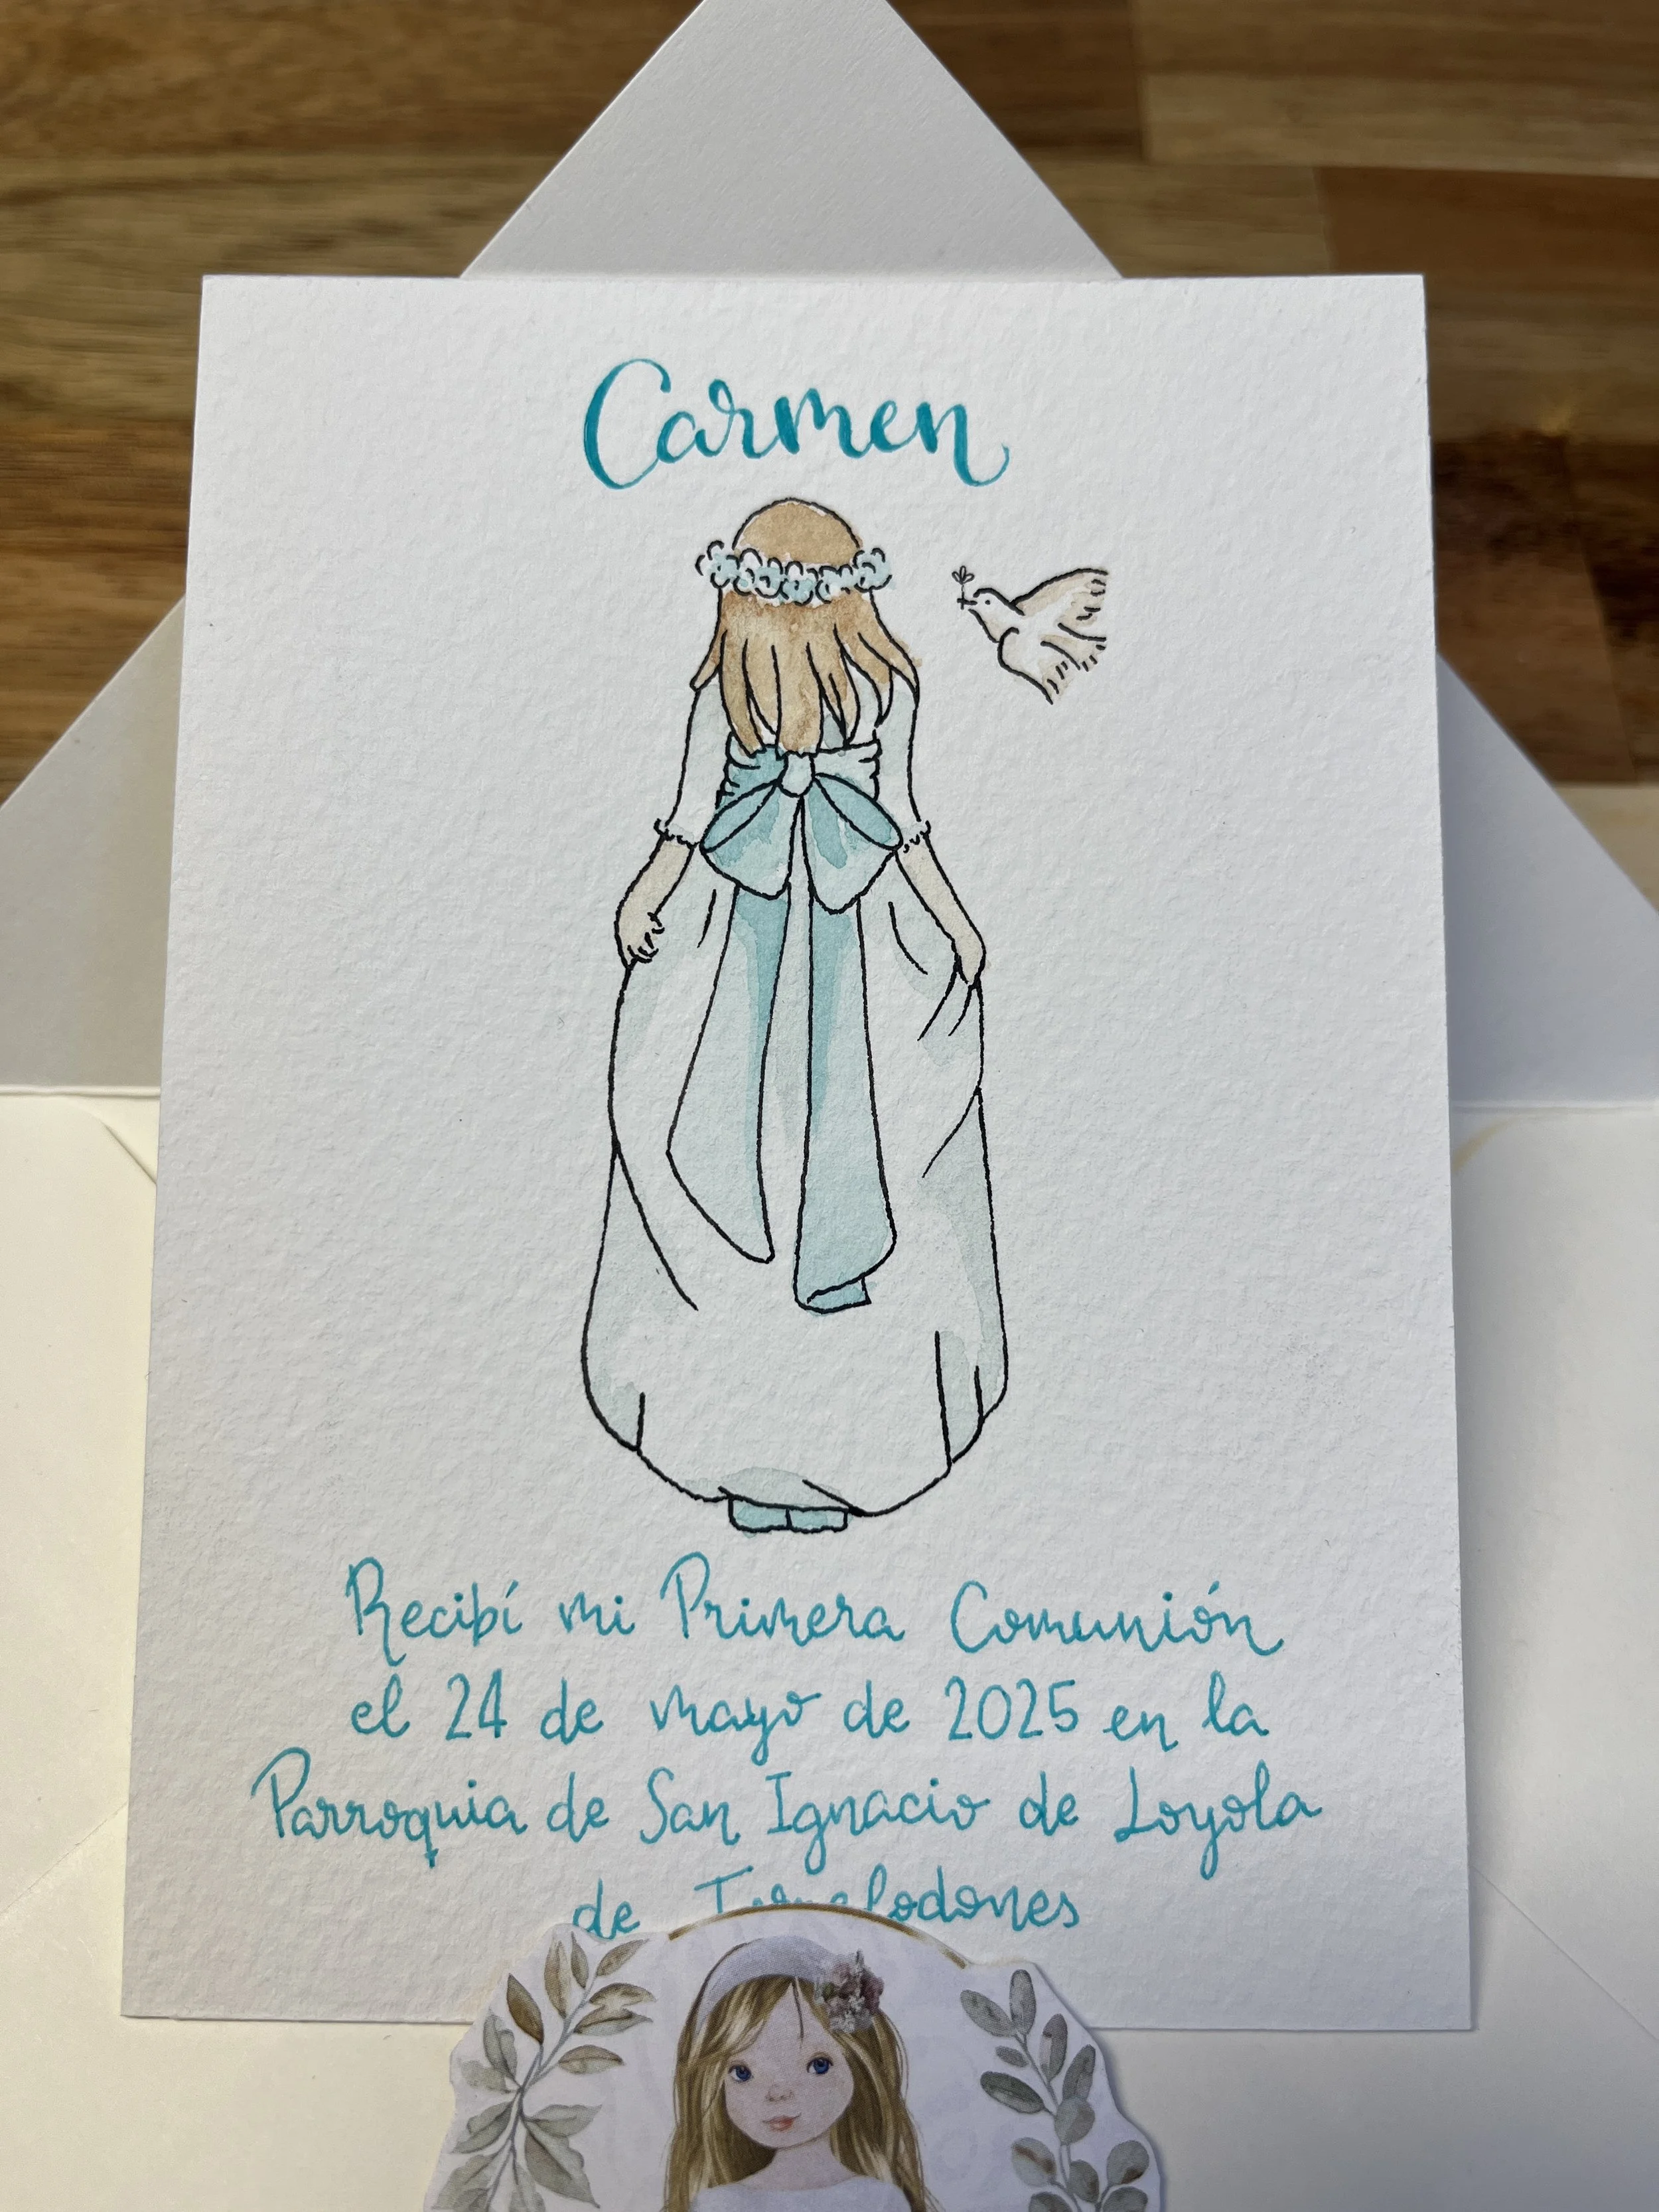 Carmen
Recibí mi Primera Comunión
el 24 de mayo de 2025 en la
Parroquia de San Ignacio de Loyola
de Torrelodones